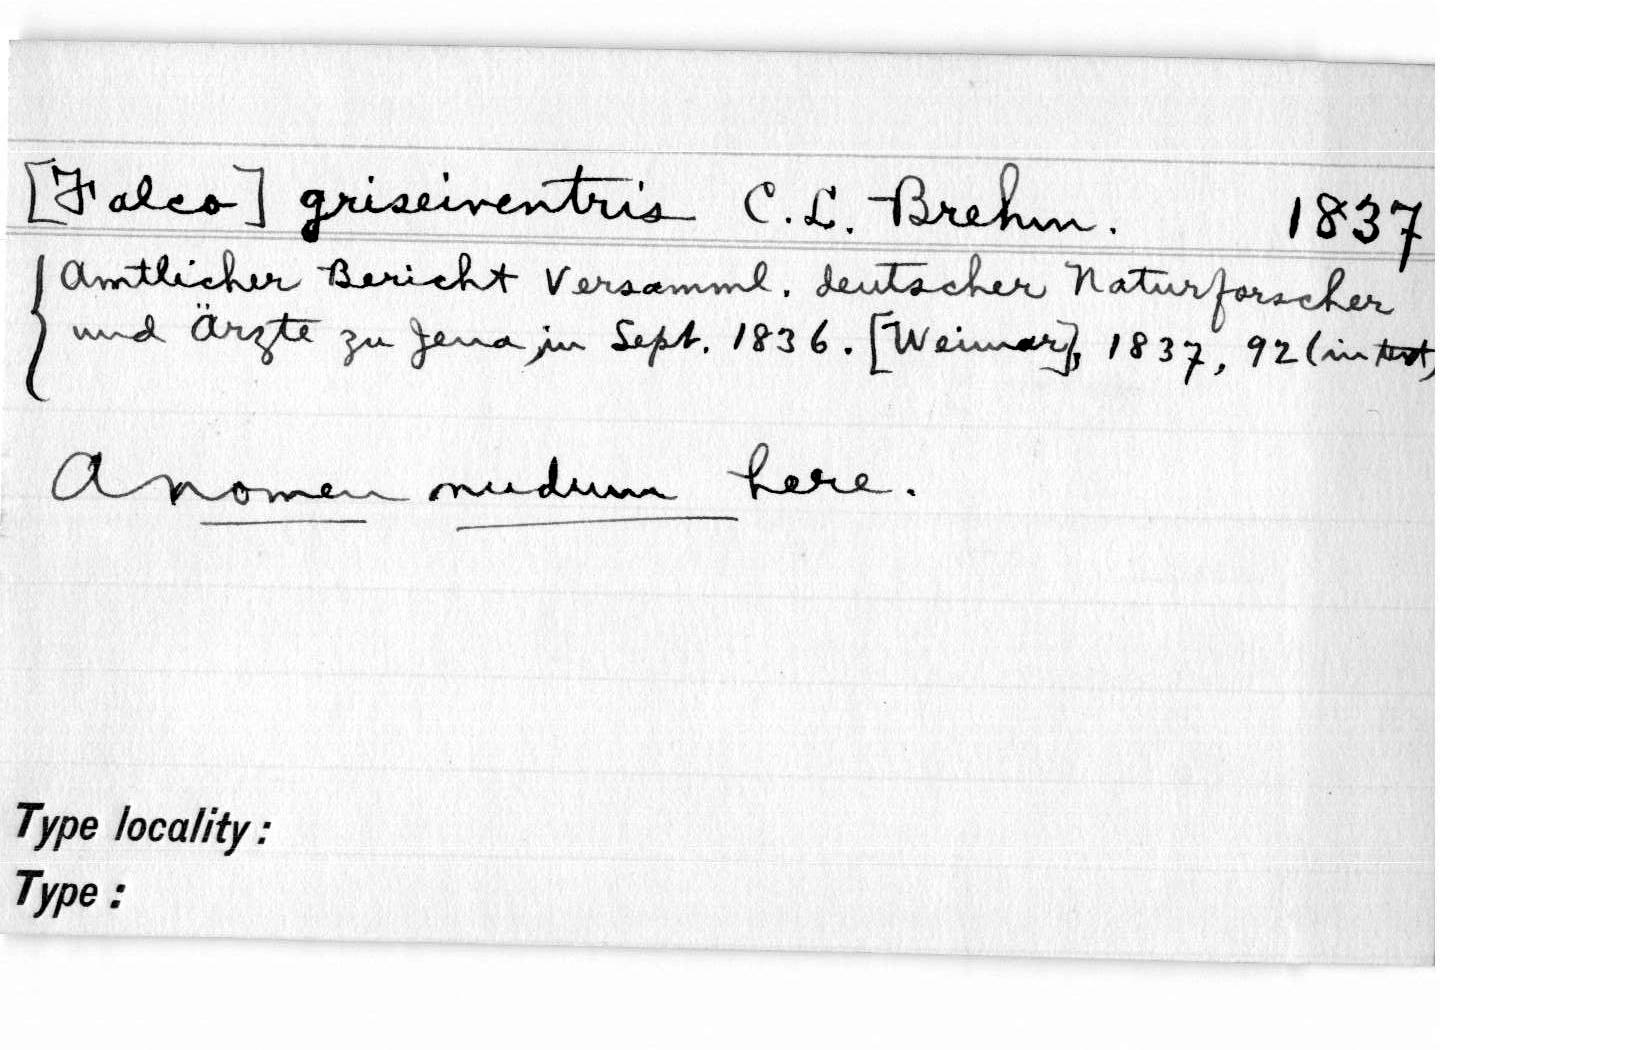 [Falco] griseiventris C. L. Brehm. 1837
Amtlicher Bericht Versamml. deutscher Naturforscher
und Ärzte zu Jena, in Sept. 1836. [Weimar], 1837, 92 (in text)
A nomen nudum here.
Type locality:
Type: